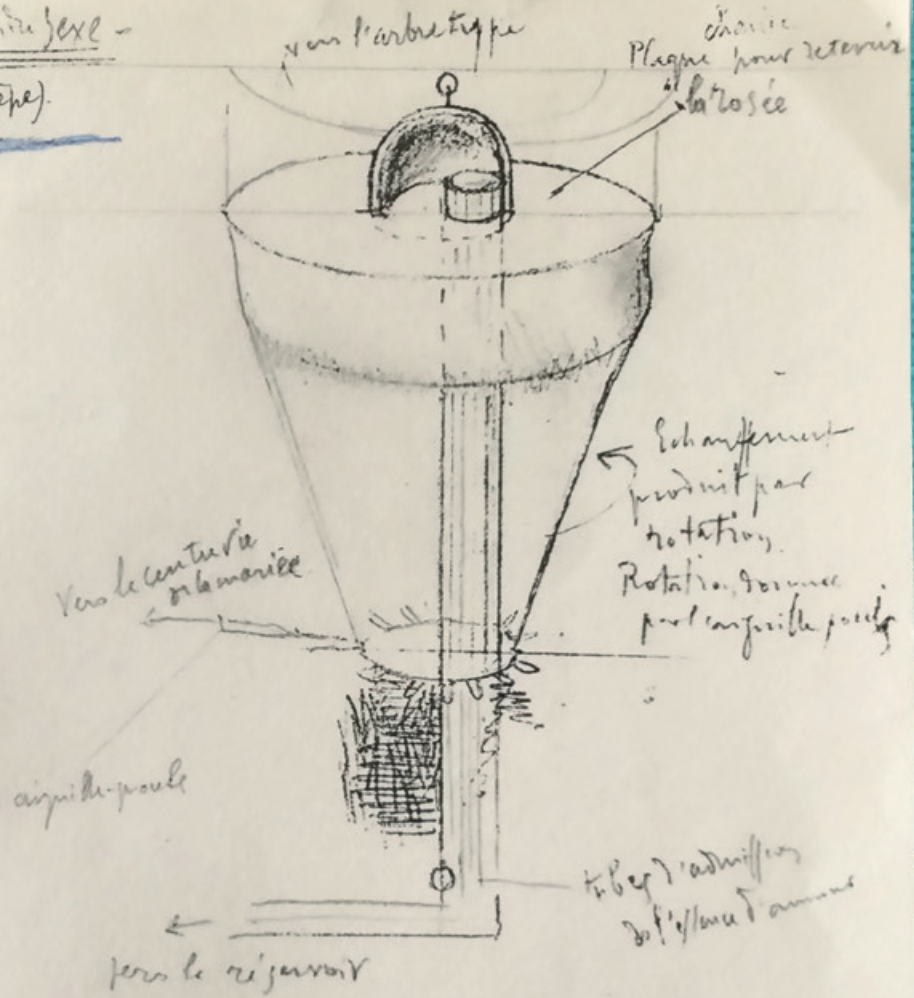 sexe -
vers l'arbre type
Plaque pour retenir
la rosée
Echauffement
produit par
rotation
Rotation donnée
par l'aiguille pouls
Vers le centre vie
de la mariée
aiguille-pouls
tubes d'admission
de l'essence d'amour
vers le réservoir